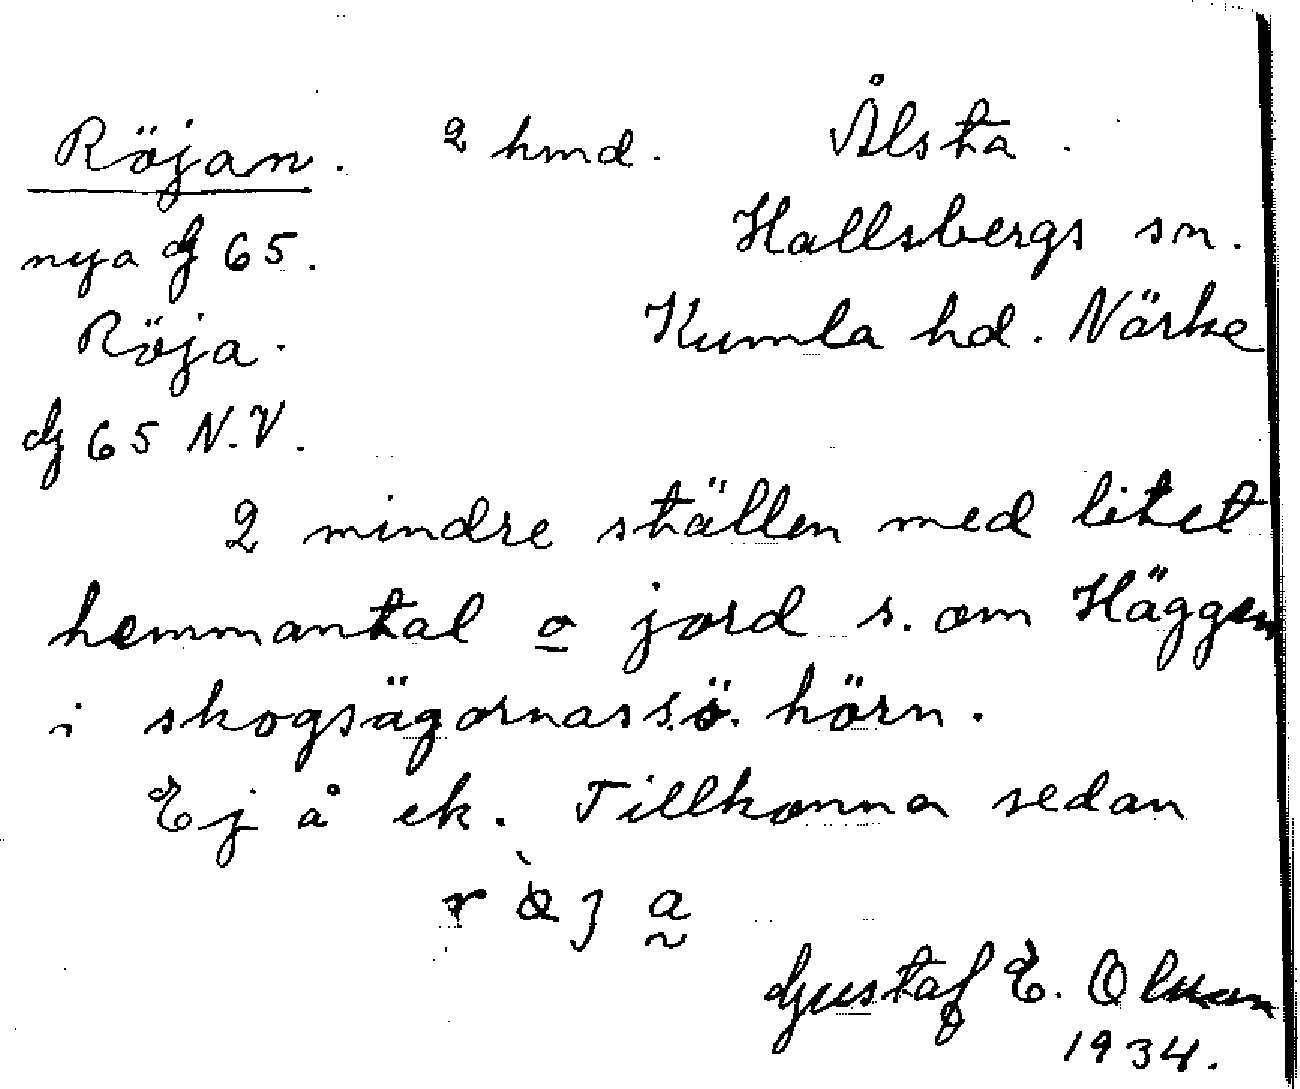 Röjan. 2 hmd. Ålsta.
nya G 65. Hallsbergs sn.
Röja. Kumla hd. Närke
G 65 N.V.
2 mindre ställen med litet
hemmantal o jord s. om Häggen
i skogsägornas s.ö. hörn.
Ej å ek. Tillkomna sedan
Gustaf E. Olsson
1934.